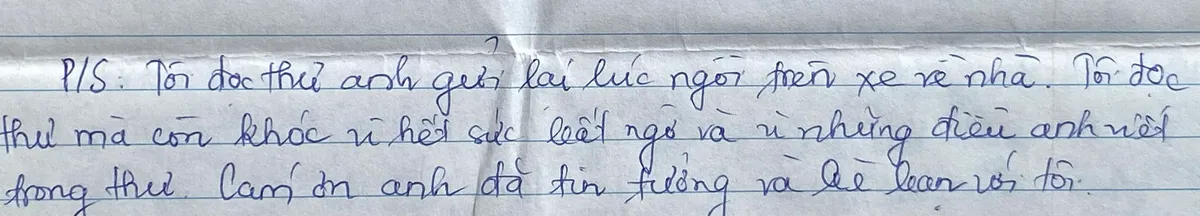 P/S: Tôi đọc thư anh gửi lại lúc ngồi trên xe về nhà. Tôi đọc
thư mà còn khóc vì hết sức bất ngờ và vì những điều anh viết
trong thư. Cảm ơn anh đã tin tưởng và kề loan với tôi.